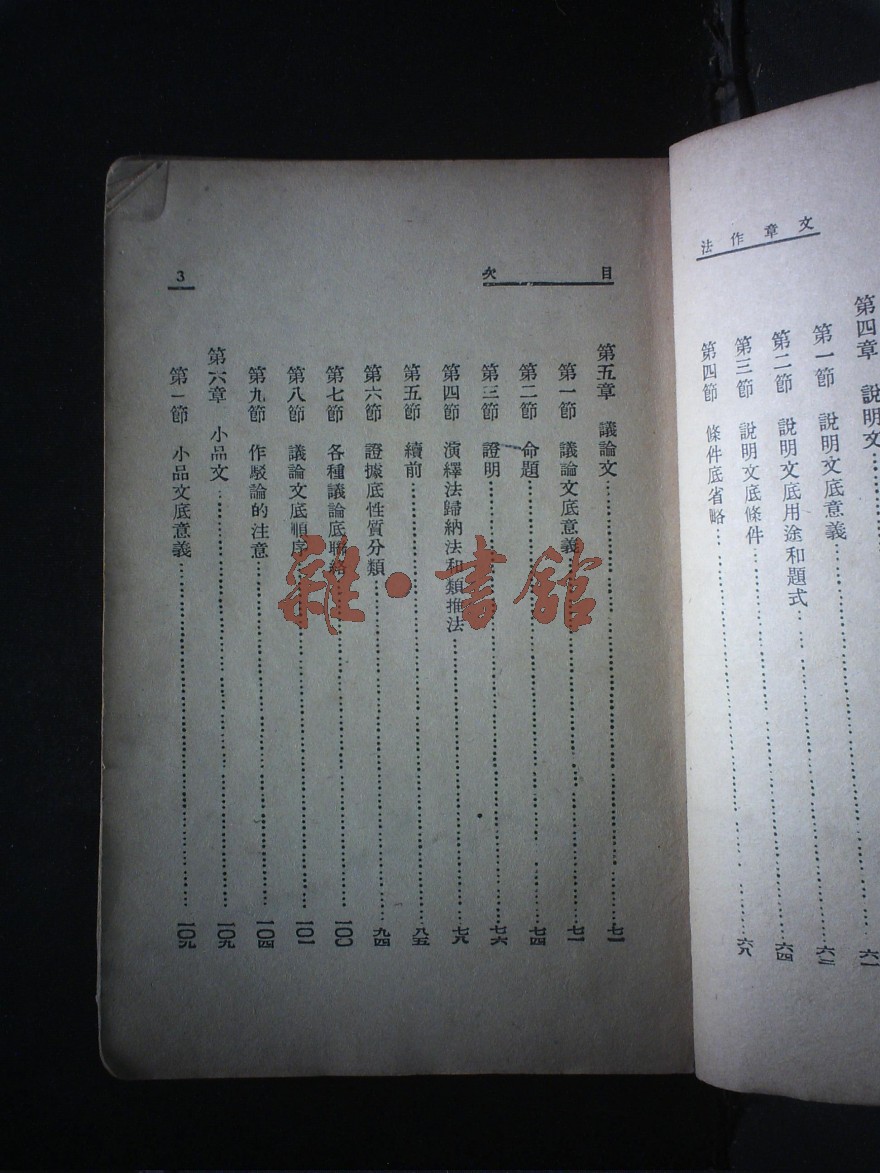 文章作法
第四章 說明文 六一
第一節 說明文底意義 六二
第二節 說明文底用途和題式 六四
第三節 說明文底條件 六八
第四節 條件底省略
目次
3
第五章 議論文 七一
第一節 議論文底意義 七一
第二節 命題 七四
第三節 證明 七六
第四節 演繹法歸納法和類推法 七八
第五節 續前 八五
第六節 證據底性質分類 九四
第七節 各種議論底聯絡 一〇〇
第八節 議論文底順序 一〇一
第九節 作駁論的注意 一〇四
第六章 小品文 一〇九
第一節 小品文底意義 一〇九
雜·書館